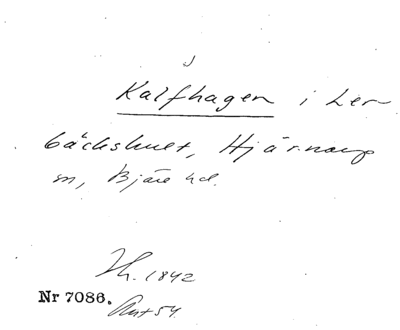 Kalfhagen i Ler
bäckshult, Hjärnarp
sn, Bjäre hd.
Th. 1842
Nr 7086.
Ant 54.